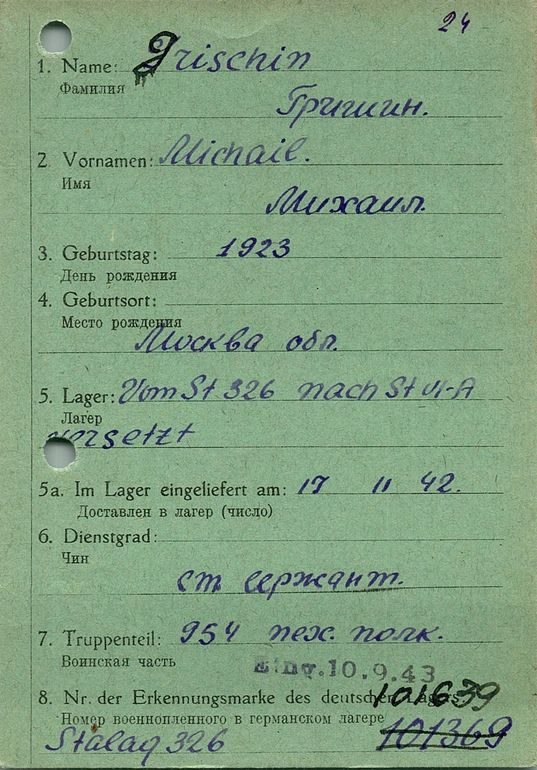 24
1. Name: Grischin
Фамилия
Гришин.
2. Vornamen: Michail.
Имя
Михаил.
3. Geburtstag: 1923
День рождения
4. Geburtsort:
Место рождения
Москва обл.
5. Lager: Vom St 326 nach St VI-A
Лагер
versetzt
5a. Im Lager eingeliefert am: 17 11 42.
Доставлен в лагер (число)
6. Dienstgrad:
Чин
ст. сержант.
7. Truppenteil: 954 пех. полк.
Воинская часть
Eing. 10.9.43
8. Nr. der Erkennungsmarke des deutschen Lagers 101639
Номер военнопленного в германском лагере
Stalag 326 101369